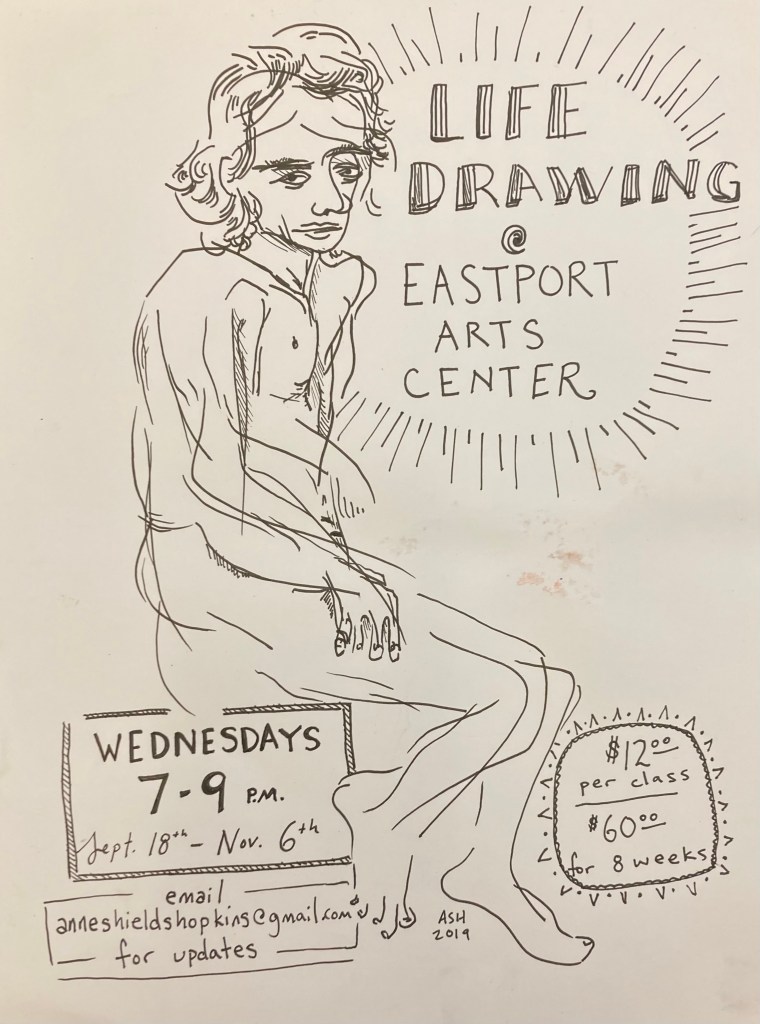 LIFE
DRAWING
@
EASTPORT
ARTS
CENTER
WEDNESDAYS
7-9 P.M.
Sept. 18th - Nov. 6th
email
anneshieldshopkins@gmail.com
for updates
ASH
2019
$12.00
per class
$60.00
for 8 weeks